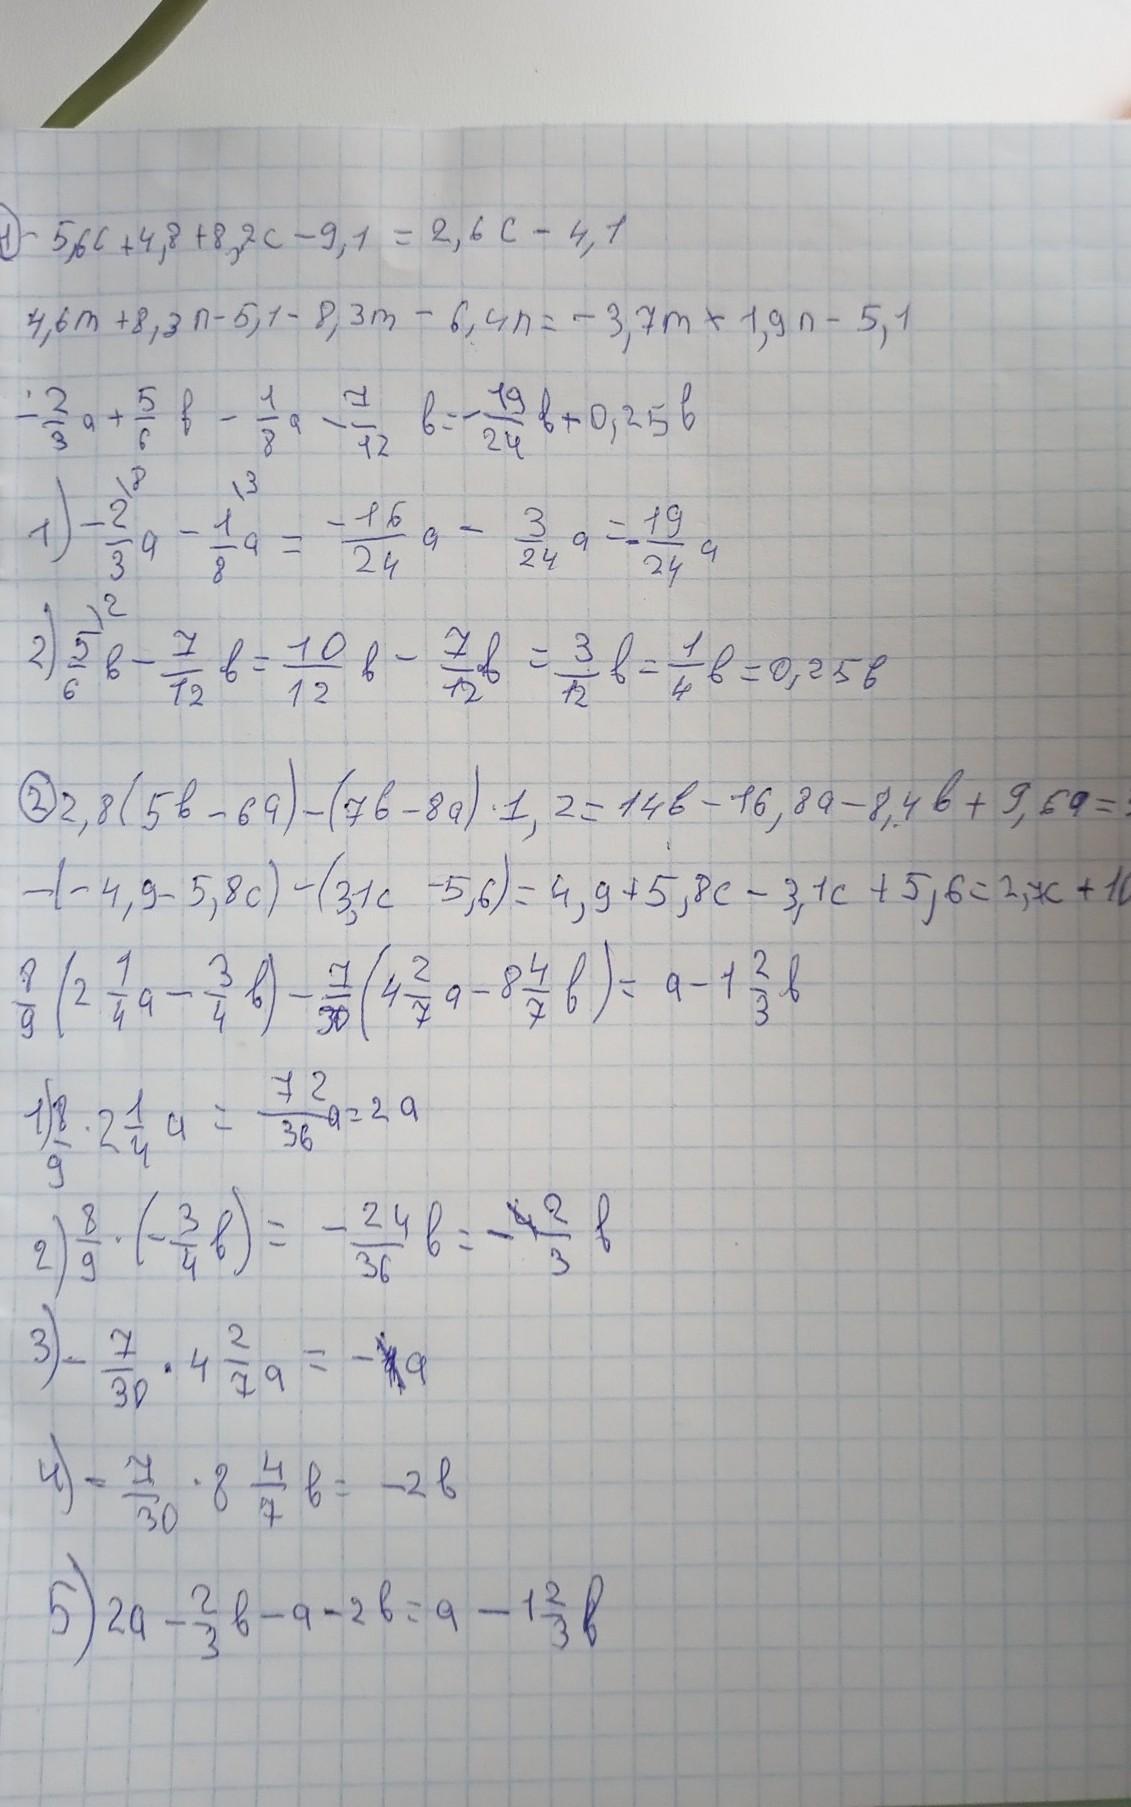 1) - 5,6c + 4,8 + 8,2c - 9,1 = 2,6c - 4,1
4,6m + 8,3n - 5,1 - 8,3m - 6,4n = - 3,7m + 1,9n - 5,1
- 2/3 a + 5/6 в - 1/8 a - 7/12 в = - 19/24 в + 0,25в
1) - 2/3 \8 a - 1/8 \3 a = -16/24 a - 3/24 a = - 19/24 a
2) 5/6 \2 в - 7/12 в = 10/12 в - 7/12 в = 3/12 в = 1/4 в = 0,25в
2) 2,8(5в - 6a) - (7в - 8a) · 1,2 = 14в - 16,8a - 8,4в + 9,6a =
- (- 4,9 - 5,8c) - (3,1c - 5,6) = 4,9 + 5,8c - 3,1c + 5,6 = 2,7c + 10
8/9 (2 1/4 a - 3/4 в) - 7/30 (4 2/7 a - 8 4/7 в) = a - 1 2/3 в
1) 8/9 · 2 1/4 a = 72/36 a = 2a
2) 8/9 · (- 3/4 в) = - 24/36 в = - 2/3 в
3) - 7/30 · 4 2/7 a = - a
4) - 7/30 · 8 4/7 в = - 2в
5) 2a - 2/3 в - a - 2в = a - 1 2/3 в